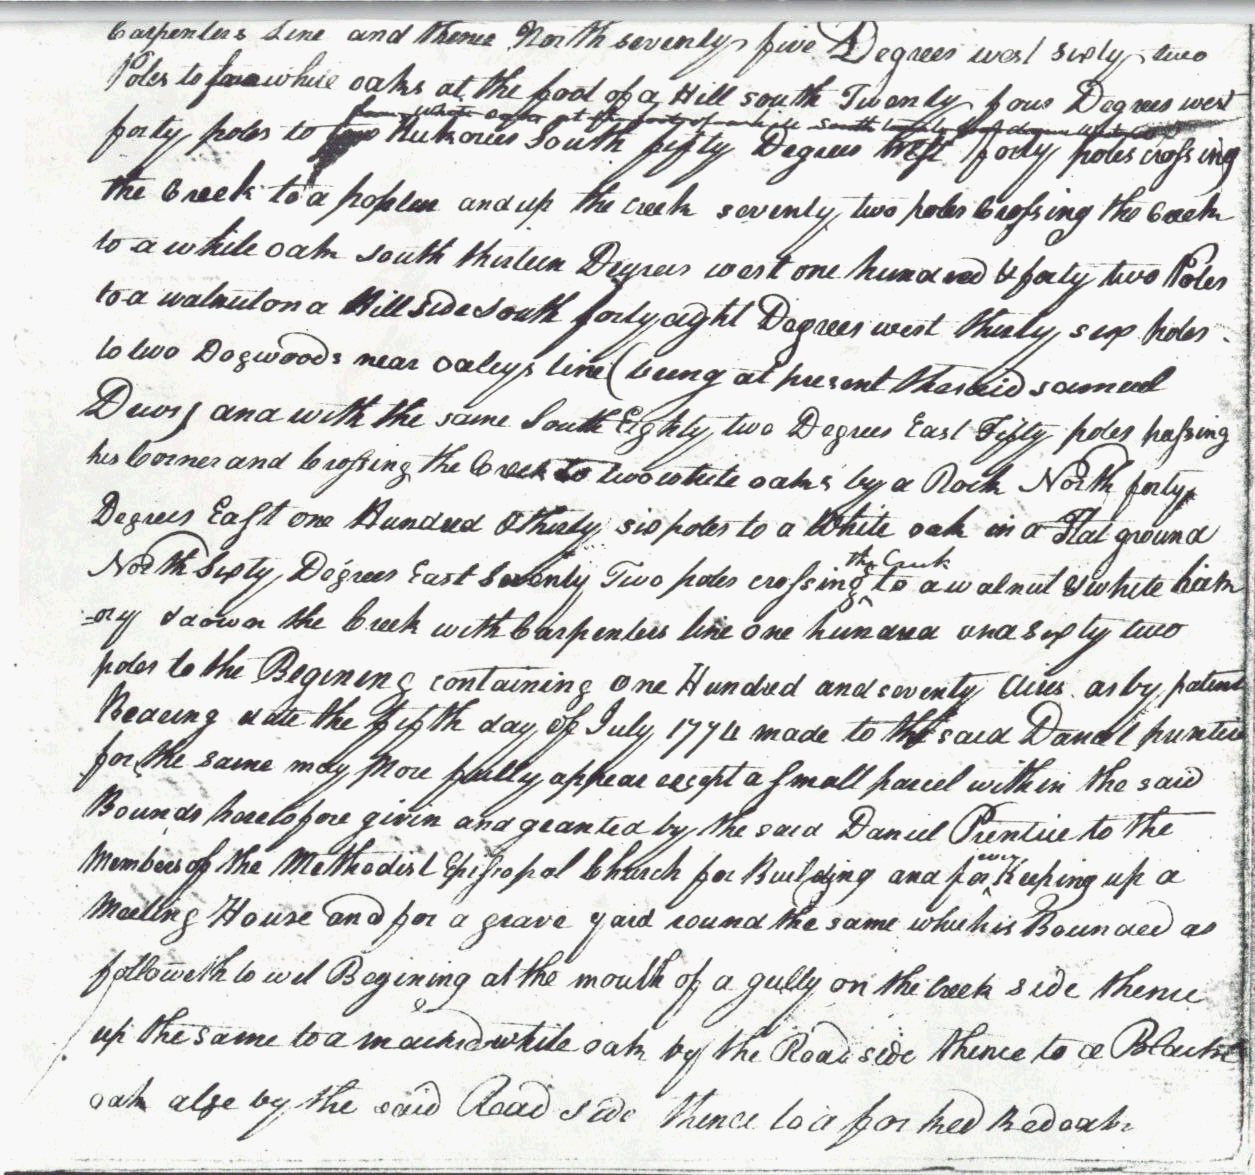 Carpenters Line and thence North seventy five Degrees west sixty two
Poles to four white oaks at the food of a Hill south Twenty four Degrees west
four white oakes at the foot of a Hill south twenty four degrees west
forty poles to two hickories South fifty Degrees West forty poles crossing
the Creek to a poplar and up the creek seventy two poles Crossing the Creek
to a white oak South thirteen Degrees west one hundred & forty two Poles
to a walnut on a Hill Side South forty eight Degrees west thirty six poles
to two Dogwoods near oaleys line (being at present the said samuel
Dews) and with the same South Eighty two Degrees East Fifty poles passing
his Corner and Crossing the Creek to two white oaks by a Rock North forty
Degrees East one Hundred & thirty six poles to a White oak in a Flat ground
North Sixty Degrees East Seventy Two poles crossing the Creek to a walnut & white hick
-ory & down the Creek with Carpenters line one hundred and sixty two
poles to the Begining containing One Hundred and seventy Acres as by patent
Bearing date the fifth day of July 1774 made to the said Daniel prentice
for the same may More fully appear except a small parcel within the said
Bounds heretofore given and granted by the said Daniel Prentice to the
Members of the Methodist Episcopal Church for Building and for ever Keeping up a
Meeting House and for a grave yard round the same which is Bounded as
followeth to wit Begining at the mouth of a gully on the Creek side thence
up the same to a marked white oak by the Road side thence to a Black
oak also by the said Road side thence to a forked Red oak